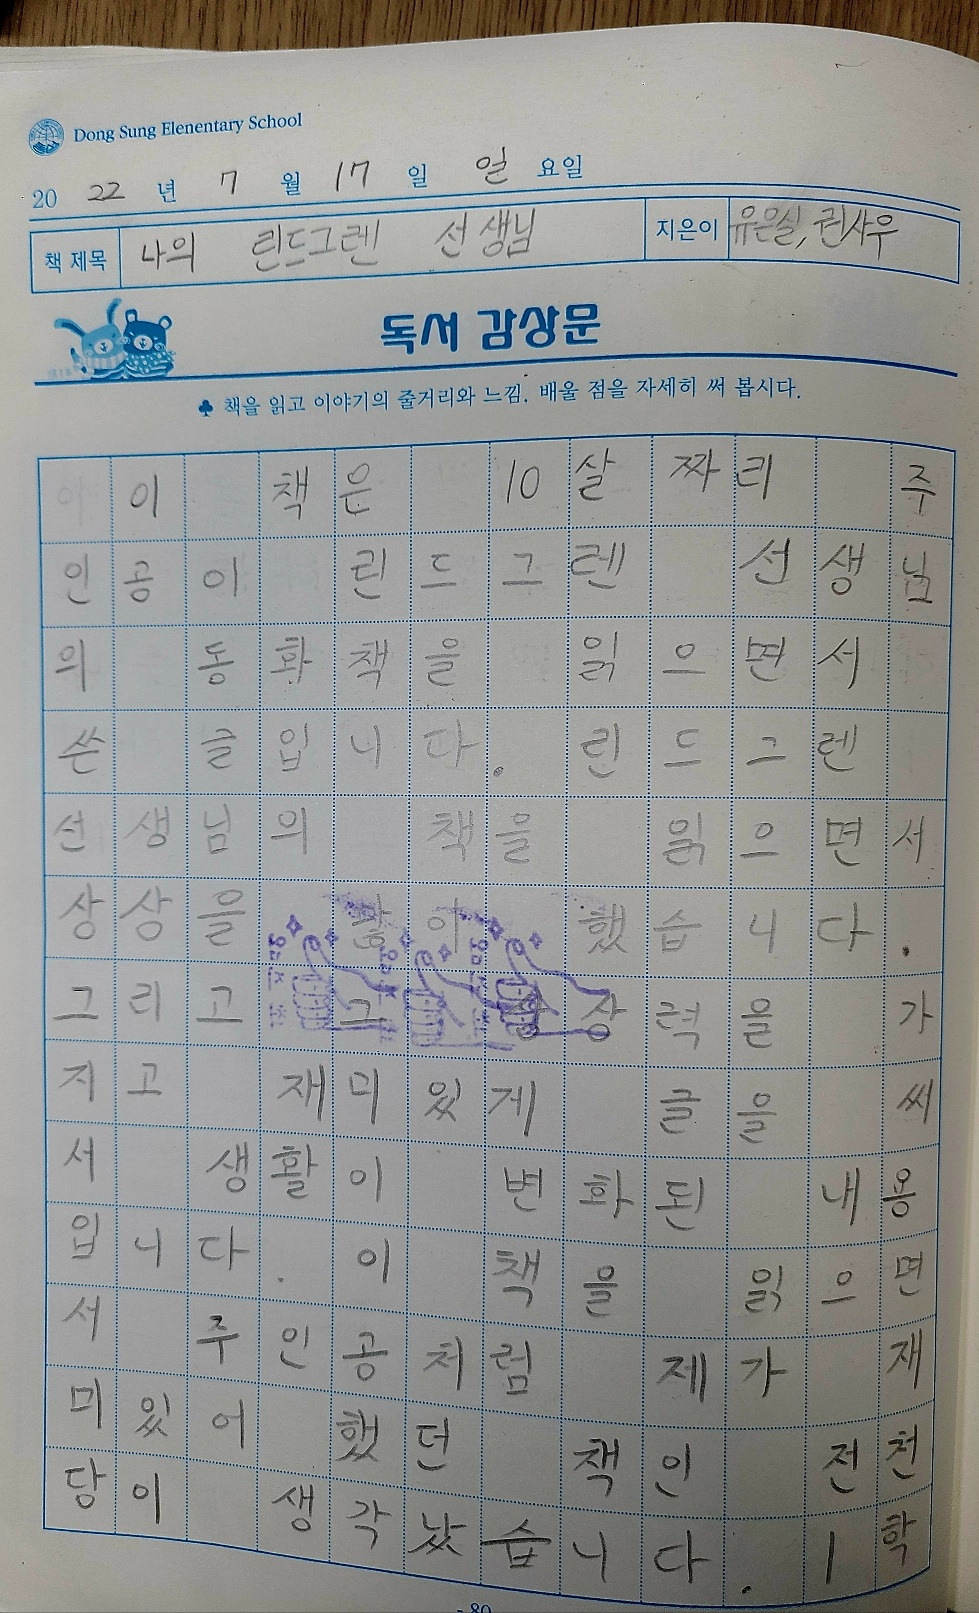 Dong Sung Elenentary School
20 22 년 7 월 17 일 일 요일
책 제목 나의 린드그렌 선생님 지은이 유은실, 권사우
독서 감상문
♣ 책을 읽고 이야기의 줄거리와 느낌, 배울 점을 자세히 써 봅시다.
이 책은 10살짜리 주
인공이 린드그렌 선생님
의 동화책을 읽으면서
쓴 글입니다. 린드그렌
선생님의 책을 읽으면서
상상을 많이 했습니다.
그리고 그 상상력을 가
지고 재미있게 글을 써
서 생활이 변화된 내용
입니다. 이 책을 읽으면
서 주인공처럼 제가 재
미있어 했던 책인 전천
당이 생각났습니다. 1학
- 80